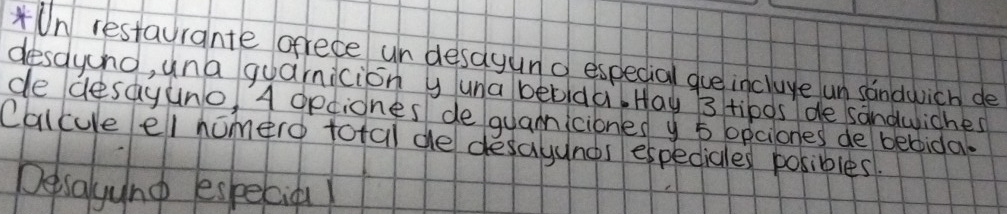 *Un restaurante ofrece un desayuno especial que incluye un sándwich de
desayuno, una guarnición y una bebida. Hay 3 tipos de sándwiches
de desayuno, 4 opciones de guarniciones y 5 opciones de bebida.
Calcule el número total de desayunos especiales posibles.
Desayuno especial